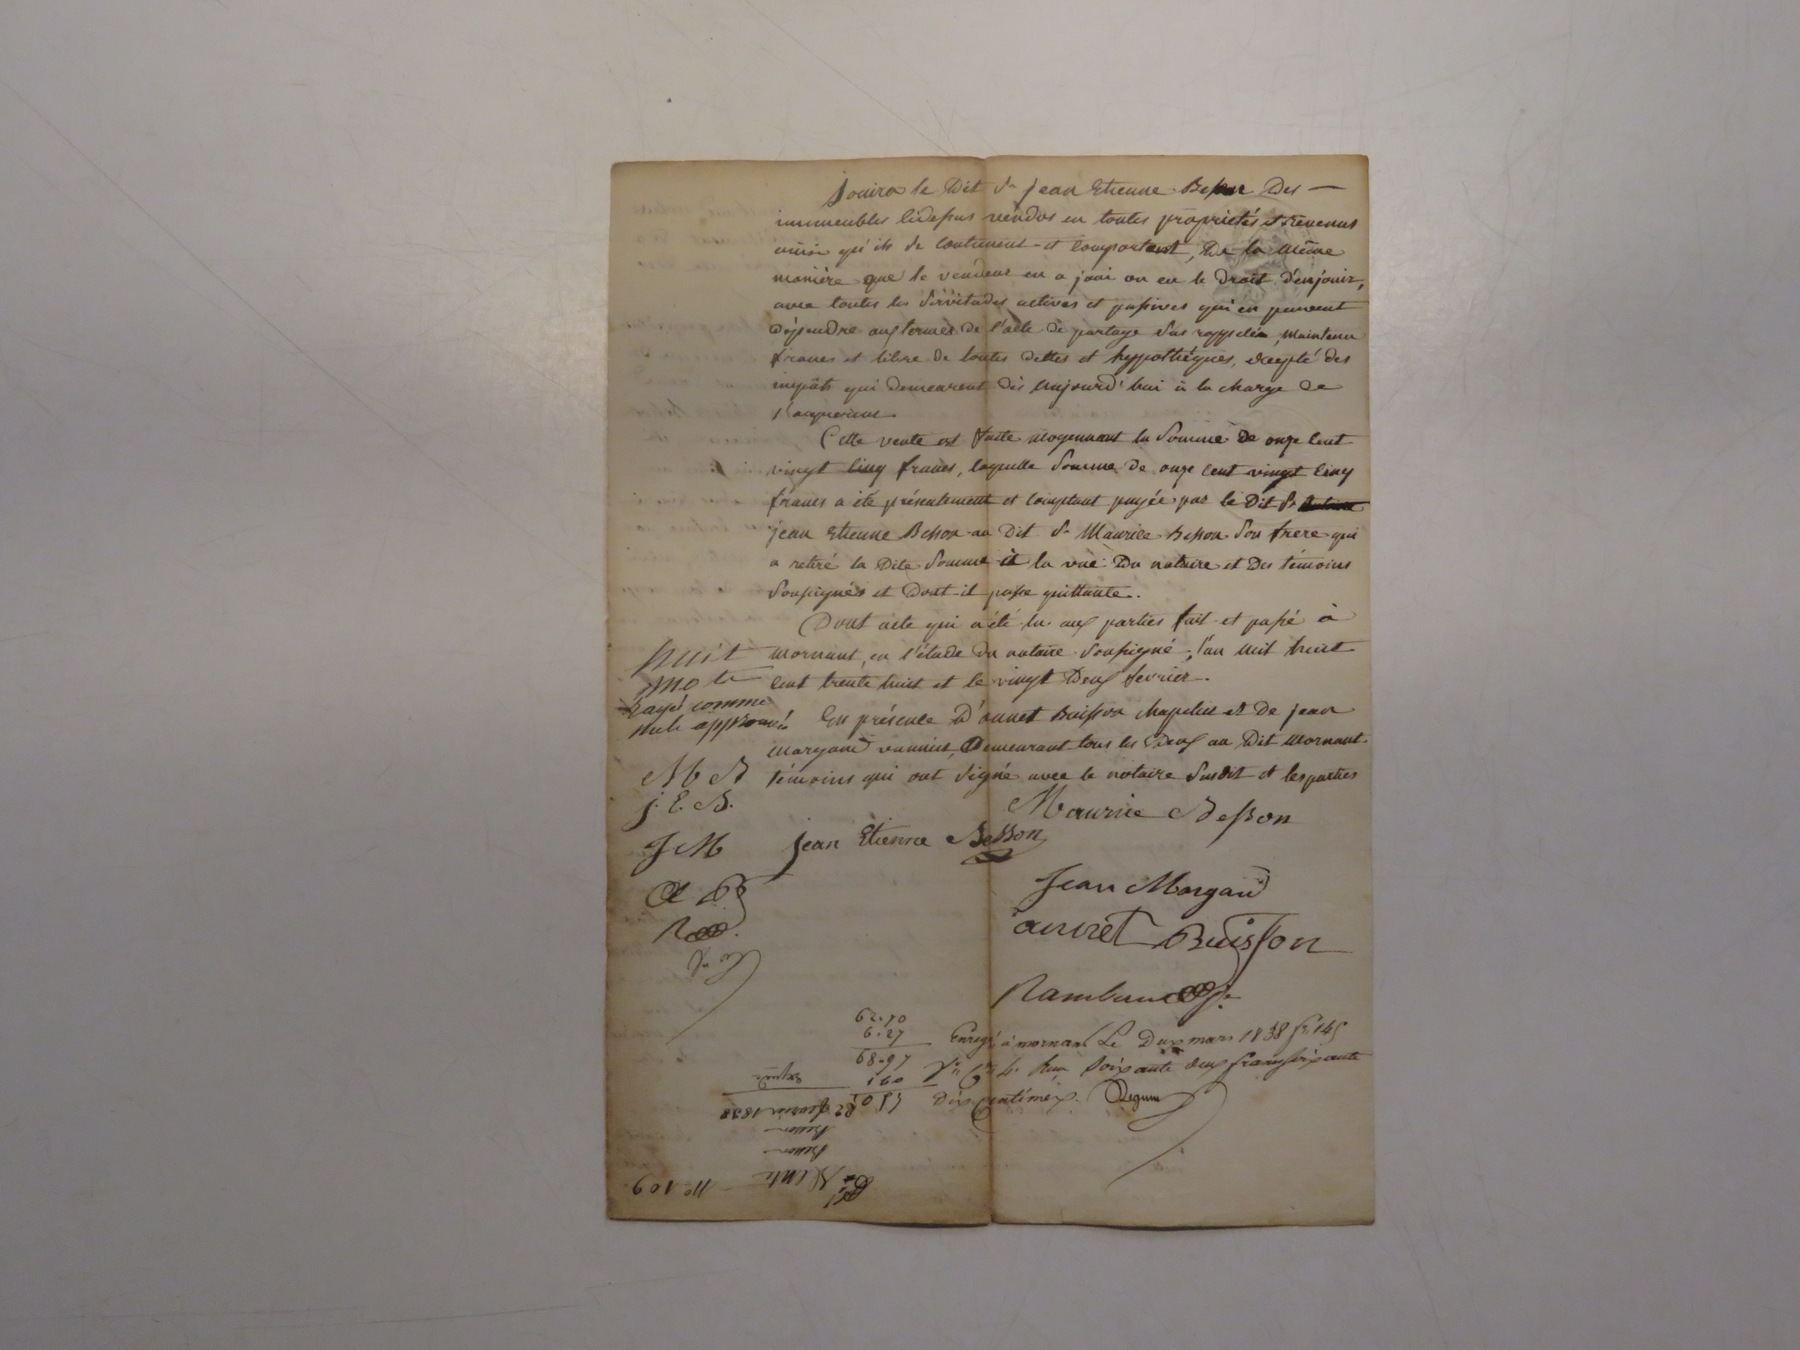 Jouira le Dit Sr Jean Etienne Besson Des —
immeubles cidessus vendus en toutes propriétés et Revenus
ainsi qu'ils se contienent et comportent, De la même
manière que le vendeur en a joui ou eu le droit d'enjouir,
avec toutes les Servitudes actives et passives qui en peuvent
dépendre aux termes de l'acte de partage sus rappelée, maintenu
francs et libre de toutes dettes et hyppothèques, excepté des
impôts qui demeurent dès aujourd'hui à la charge de
l'acquereur.
Cette vente est faite moyennant la Somme de onze Cent
vingt Cinq francs, laquelle Somme de onze Cent vingt Cinq
francs a été présentement et comptant payée par le Dit Sr
Jean Etienne Besson au Dit Sr Maurice Besson Son frere qui
a retiré la Dite Somme à la vue Du notaire et Des témoins
Soussignés et Dont il passe quittance.
Dont acte qui a été lu aux parties fait et passé à
Mornant, en l'étude du notaire Soussigné, l'an mil huit
Cent trente huit et le vingt Deux fevrier.
En présence D'annet Buisson chapelier et De Jean
Morgand vannier, Demeurant tous les Deux au Dit Mornant
témoins qui ont Signé avec le notaire Susdit et les parties
huit
mots
rayé comme
nuls approuvés
M B
J. E. B.
J M
A B
Maurice Besson
Jean Etienne Besson
Jean Morgand
annet Buisson
62.70
6.27
68.97
1 60
Enregé à mornant Le Deux mars 1838 fo 145
Soixante deux francs soixante
Dix Centimes.
22 fevrier 1838
Besson
Besson
Vente
No 109